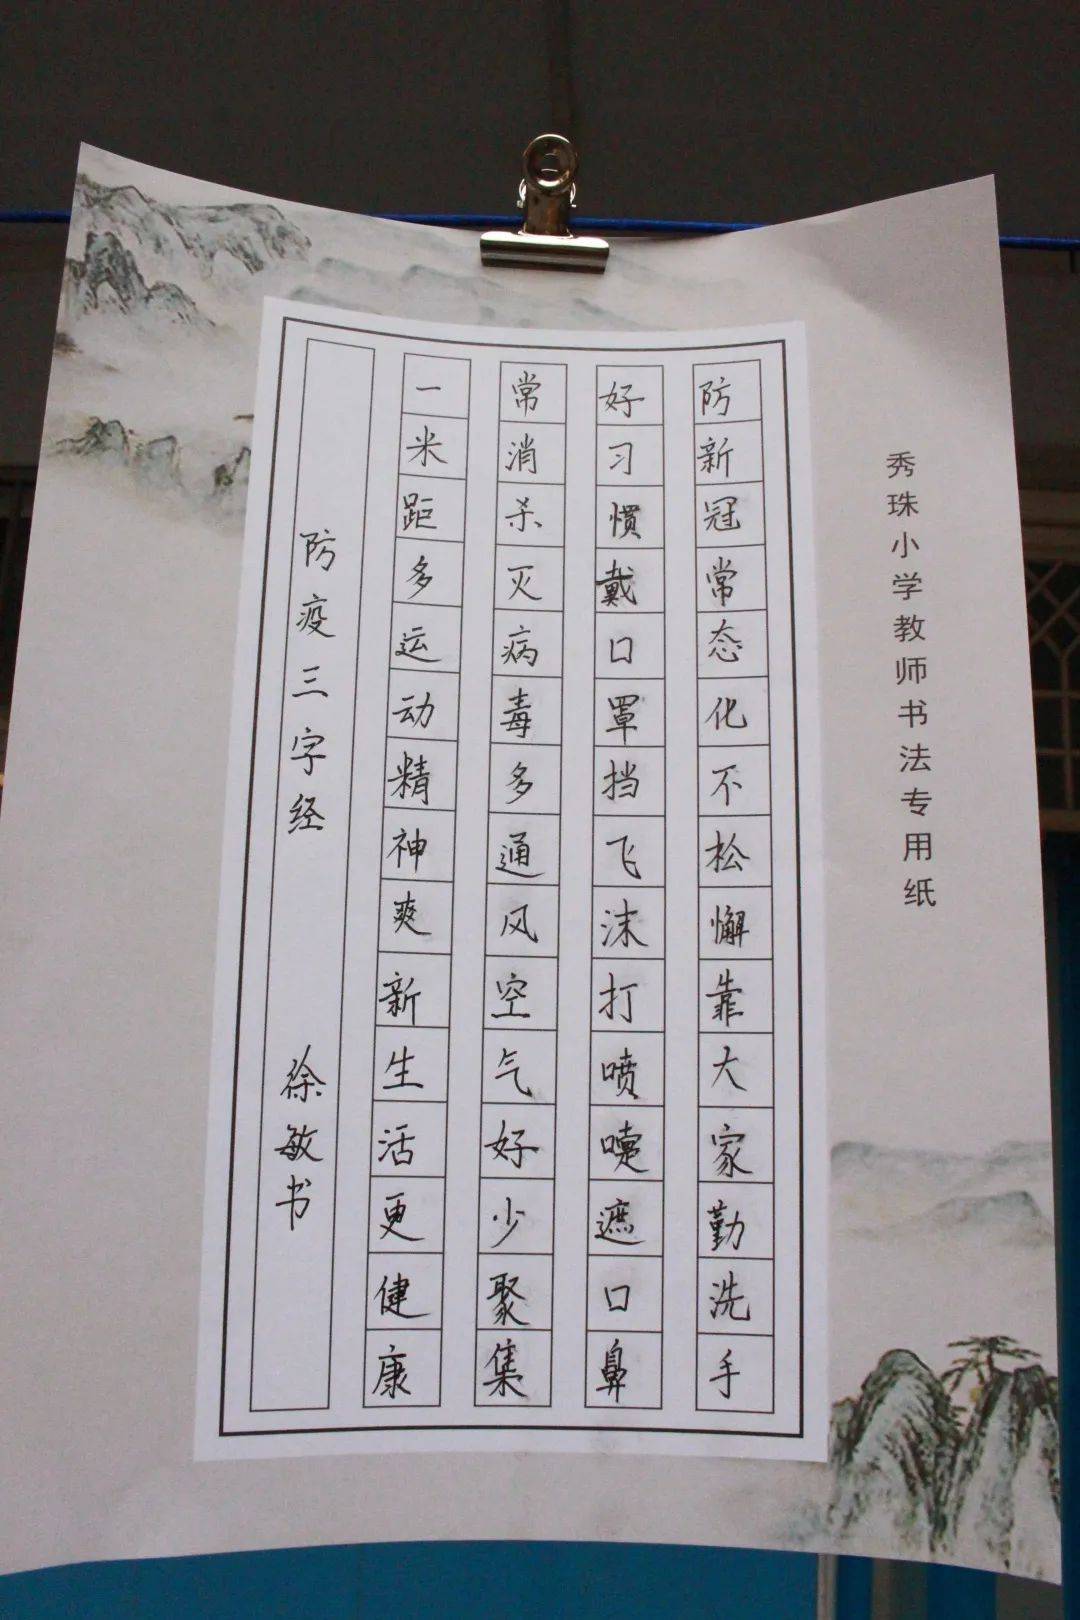 秀珠小学教师书法专用纸
防新冠常态化不松懈靠大家勤洗手
好习惯戴口罩挡飞沫打喷嚏遮口鼻
常消杀灭病毒多通风空气好少聚集
一米距多运动精神爽新生活更健康
防疫三字经 徐敏书